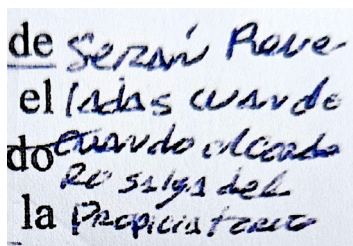 de Serán Reve-
el ladas cuando
do cuando el corde
Ro salga del
la Propiciatorio